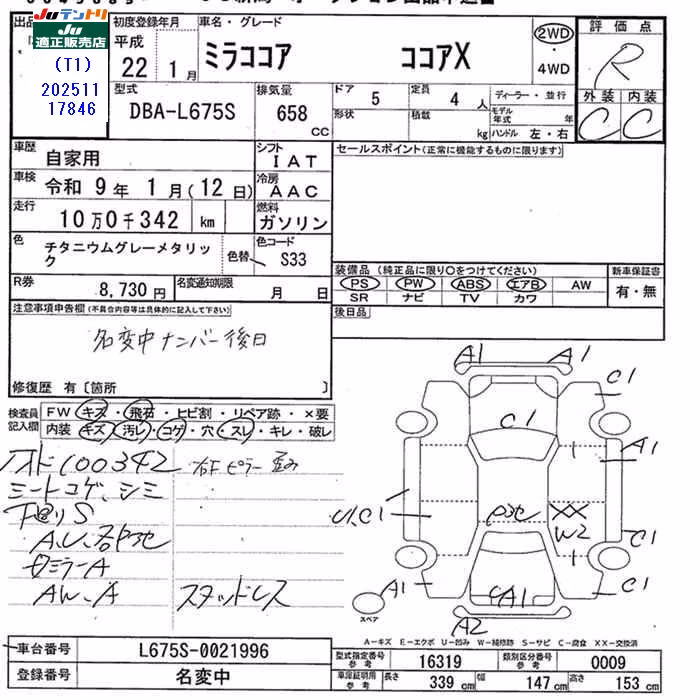 Juテントリ
Ju適正販売店
(T1)
202511
17846
初度登録年月
平成
22 1月
車名・グレード
ミラココア ココアX
2WD
・
4WD
評価点
R
外装 内装
C C
型式
DBA-L675S
排気量
658 CC
ドア 5
定員 4 人
形状
積載 kg
ディーラー・並行
モデル年式 年
ハンドル 左・右
車歴 自家用
シフト IAT
セールスポイント(正常に機能するものに限ります)
車検 令和 9年 1月(12日)
冷房 AAC
走行 10万0千342 km
燃料 ガソリン
色 チタニウムグレーメタリック
色替
色コード S33
R券 8,730円
名変通知期限 月 日
装備品(純正品に限り○をつけてください)
PS・PW・ABS・エアB・AW
SR・ナビ・TV・カワ
新車保証書
有・無
後日品
注意事項申告欄(不具合内容等は具体的に記入して下さい)
名変中ナンバー後日
修復歴 有〔箇所 〕
検査員記入欄
FW キズ・飛石・ヒビ割・リペア跡・×要
内装 キズ・汚レ・コゲ・穴・スレ・キレ・破レ
オド100342
右Fピラー歪み
シートコゲ、シミ
下回りS
A.U.
ミラーA
AW.A
スタッドレス
A1 A1
C1
C1
A1
U.C1
XX
W2
C1
A1
A1
C1
A2
スペア
A-キズ E-エクボ U-凹み W-補修跡 S-サビ C-腐食 XX-交換済
車台番号 L675S-0021996
登録番号 名変中
型式指定番号 参考 16319
類別区分番号 参考 0009
車庫証明用 参考 長さ 339 cm 幅 147 cm 高さ 153 cm